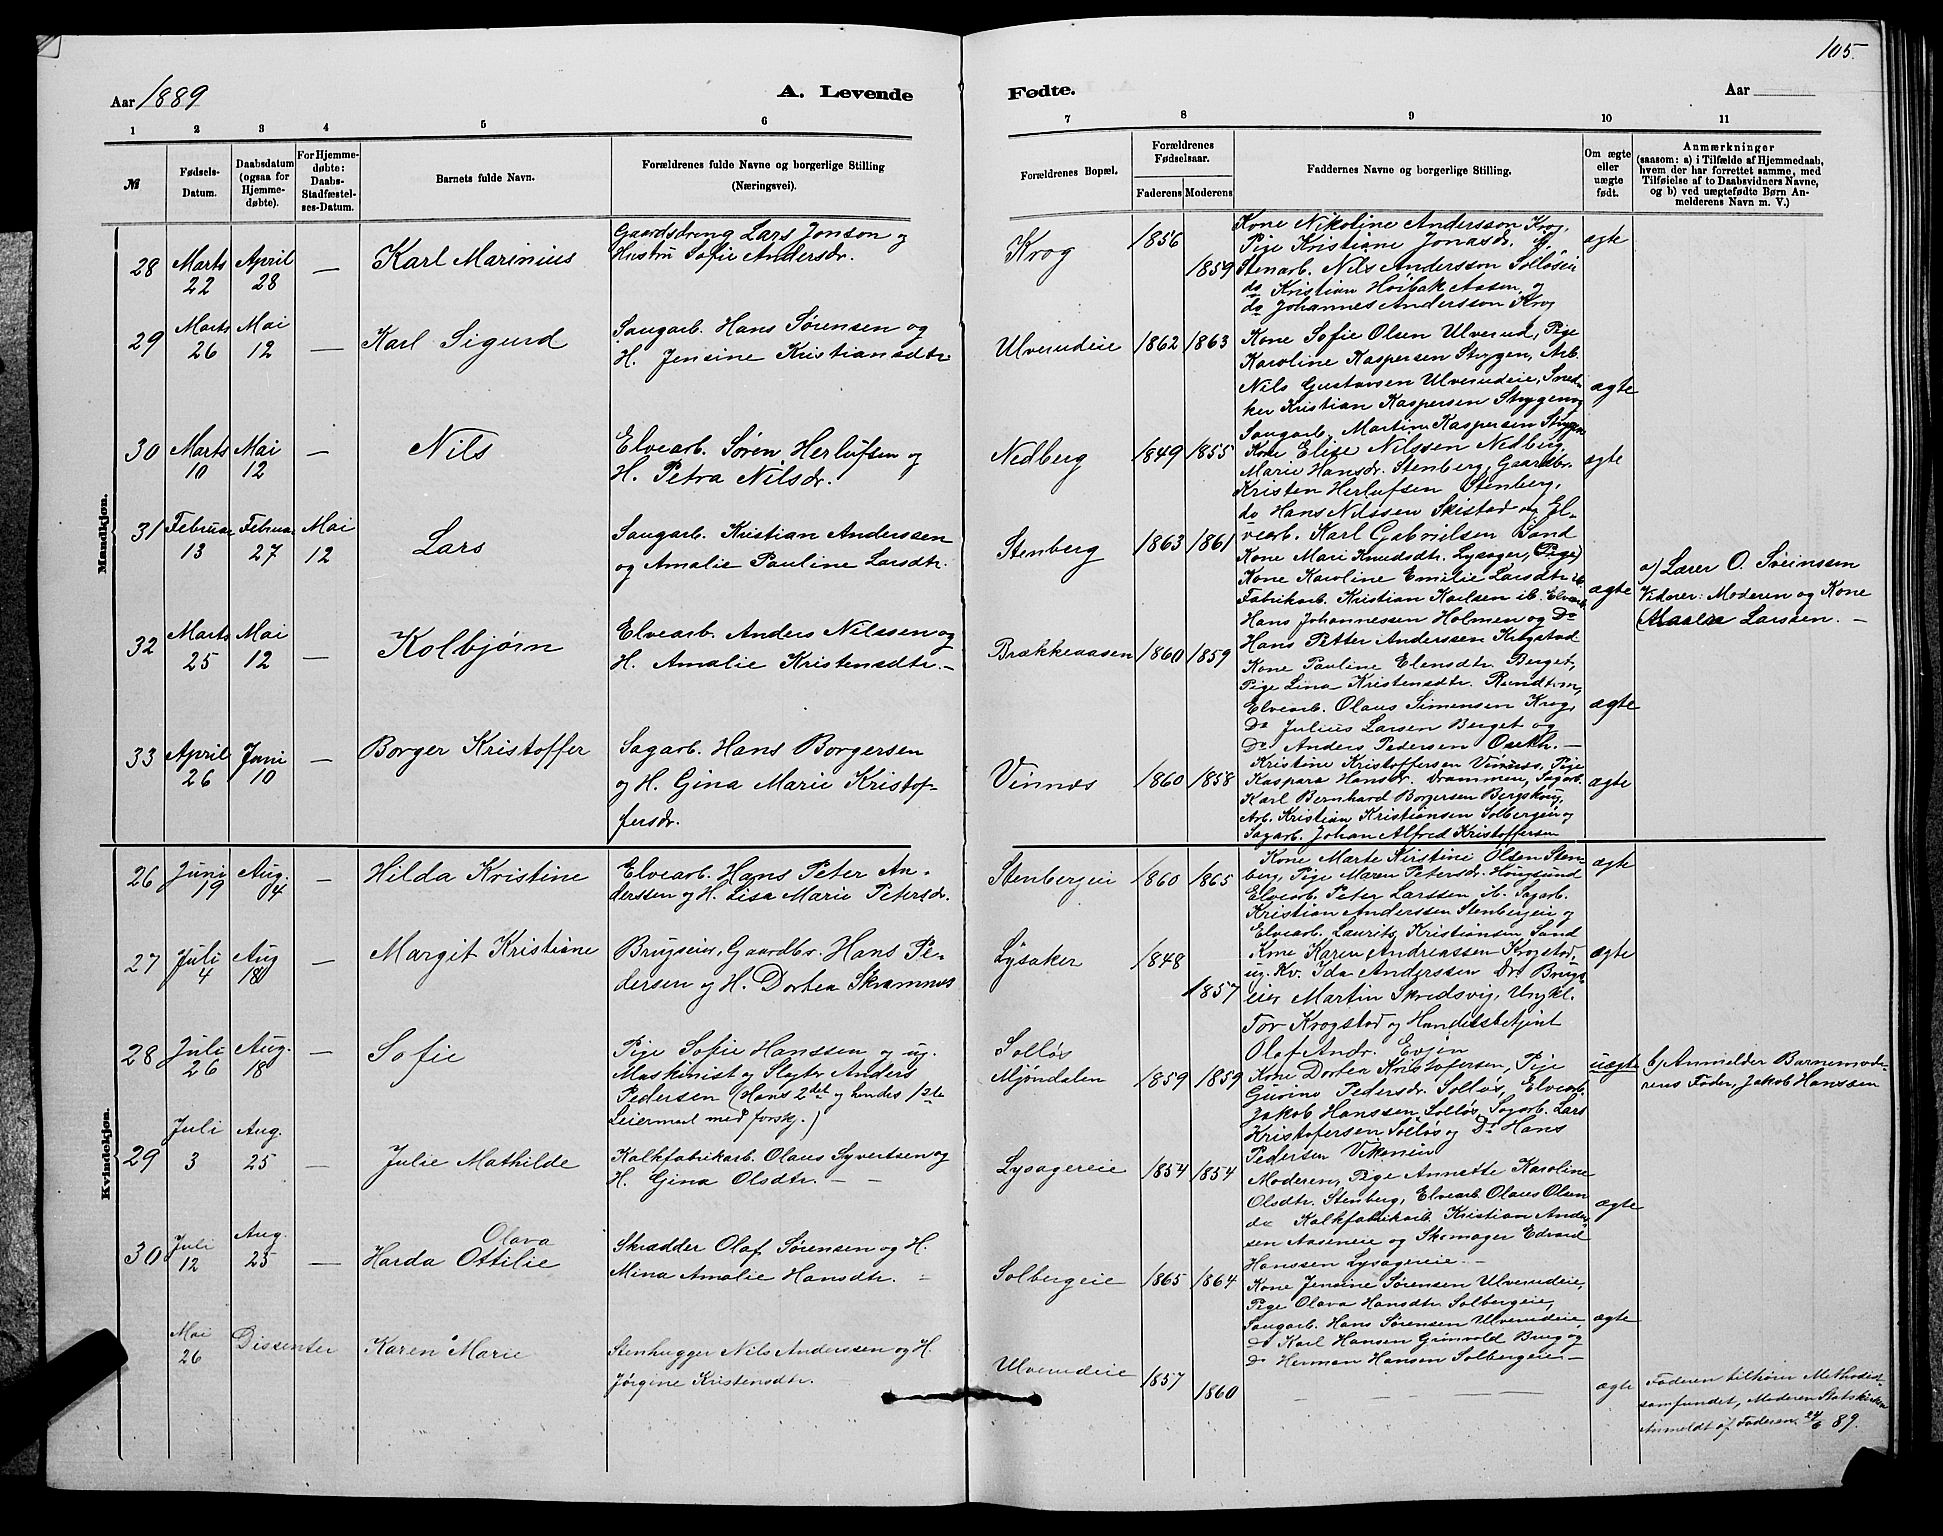 105.
Aar 1889
A. Levende
Fødte.
Aar
1 2 3 4 5 6
7 8 9 10 11
№
Fødsels-
Datum.
Daabsdatum
(ogsaa for
Hjemme-
døbte).
For Hjemme-
døbte:
Daabs-
Stadfæstel-
ses-Datum.
Barnets fulde Navn.
Forældrenes fulde Navne og borgerlige Stilling
(Næringsvei).
Forældrenes Bopæl.
Forældrenes
Fødselsaar.
Faderens Moderens
Faddernes Navne og borgerlige Stilling.
Om ægte
eller
uægte
født.
Anmærkninger
(saasom: a) i Tilfælde af Hjemmedaab,
hvem der har forrettet samme, med
Tilføielse af to Daabsvidners Navne,
og b) ved uægtefødte Børn An-
melderens Navn m. V.)
Mandkjøn.
28 Marts 22 April 28 — Karl Marinius
Gaardsdreng Lars Jonson og
Hustru Sofie Andersdr.
Krog 1856 1859
Kone Nikoline Andersson Krog,
Pige Kristiane Jonasdr. St.,
Stenarb. Nils Andersson Solløsen
do Kristian Høibak Aasen, og
do Johannes Andersson Krog
ægte
29 Marts 26 Mai 12 — Karl Sigurd
Saugarb. Hans Sørensen og
H. Jensine Kristiansdtr
Ulverudeie 1862 1863
Kone Sofie Olsen Ulverud, Pige
Karoline Kaspersen Stygen, Arb.
Nils Gustavsen Ulverudeie, Sned-
ker Kristian Kaspersen Stygen og
Saugarb. Martin Kaspersen Stygen
ægte
30 Marts 10 Mai 12 — Nils
Elvearb. Søren Herlufsen og
H. Petra Nilsdr.
Nedberg 1849 1855
Kone Elise Nilssen Nedberg,
Marie Hansdr. Stenberg, Gaardbr.
Kristen Herlufsen Stenberg,
do Hans Nilssen Skistad og El-
vearb. Karl Gabrielsen Sand
ægte
31 Februar 13 Februar 27 Mai 12 Lars
Saugarb. Kristian Anderssen
og Amalie Pauline Larsdtr.
Stenberg 1863 1861
Kone Mari Knudsdtr. Lysager, (Pige)
Kone Karoline Emilie Larsdtr ib.
Fabrikarb. Kristian Karlsen ib. Elvearb
Hans Johannessen Holmen og Do
Hans Petter Anderssen Krogstad
ægte
a) Lærer O. Sveinssen
Vidner: Moderen og Kone
Maren Larssen. —
32 Marts 25 Mai 12 — Kolbjørn
Elvearb. Anders Nilssen og
H. Amalie Kristensdtr. —
Brækkeaasen 1860 1859
Kone Pauline Elensdtr. Berget,
Pige Lina Kristensdtr. Rundtom,
Elvearb. Olaus Simensen Krog,
Do Julius Larsen Berget og
Do Anders Pedersen Overkh. —
ægte
33 April 26 Juni 10 — Borger Kristoffer
Sagarb. Hans Borgersen
og H. Gina Marie Kristof-
fersdr.
Vinnes 1860 1858
Kristine Kristoffersen Vinnes, Pige
Kaspara Hansdr. Drammen, Sagarb.
Karl Bernhard Borgersen Bergskaug,
Arb. Kristian Kristiansen Solbergeie og
Sagarb. Johan Alfred Kristoffersen
ægte
Kvindekjøn.
26 Juni 19 Aug. 4 — Hilda Kristine
Elvearb. Hans Peter An-
derssen og H. Lisa Marie Petersdr.
Stenbergeie 1860 1865
Kone Marte Kirstine Olsen Sten-
berg, Pige Maren Petersdr. Hougsund
Elvearb. Peter Larssen ib. Sagarb.
Kristian Anderssen Stenbergeie og
Elvearb. Laurits Kristiansen Sand
ægte
27 Juli 4 Aug 18 Margit Kristiane
Brugseier, Gaardbr. Hans Pe-
dersen og H. Dortea Skramnes
Lysaker 1848 1857
Kone Karen Andreassen Krogstad,
ug. Kv. Ida Anderssen Do Brugs
eier Martin Skredsvig, Ungkl.
Tor Krogstad og Handelsbetjent
Olaf Andr. Evjen
ægte
28 Juli 26 Aug. 18 — Sofie
Pige Sofie Hanssen og ug.
Maskinist og Slagter Anders
Pedersen (Hans 2det og hendes 1ste
Leiermaal med forskj.)
Solløs
Mjøndalen 1859 1859
Kone Dortea Kristofersen, Pige
Gurine Pedersdr. Solløs, Elvearb.
Jakob Hanssen Solløs, Sagarb. Lars
Kristofersen Solløs og Do Hans
Pedersen Vikeneie
uægte
b) Anmelder Barnemode-
rens Fader, Jakob Hanssen
29 Juli 3 Aug. 25 — Julie Mathilde
Kalkfabrikarb. Olaus Syvertsen og
H. Gina Olsdtr. — —
Lysagereie 1854 1854
Moderen, Pige Annette Karoline
Olsdtr. Stenberg, Elvearb. Olaus Olsen
do Kalkfabrikarb. Kristian Ander-
sen Aaseneie og Skomager Edvard
Hanssen Lysagereie. —
ægte
30 Juli 12 Aug. 25 — Harda Olava Ottilie
Skrædder Olaf Sørensen og H.
Mina Amalie Hansdtr. —
Solbergeie 1865 1864
Kone Jensine Sørensen Ulverudeie,
Pige Olava Hansdtr. Solbergeie,
Saugarb. Hans Sørensen Ulverudeie,
Do Karl Hansen Grinvold Brug og
Do Herman Hansen Solbergeie —
ægte
Mai 26 Dissenter Karen Marie
Stenhugger Nils Anderssen og H.
Jørgine Kristensdtr.
Ulverudeie 1857 1860
— — — —
ægte
Faderen tilhører Methodist-
samfundet, Moderen Statskirken
Anmeldt af Faderen 24/6 89.